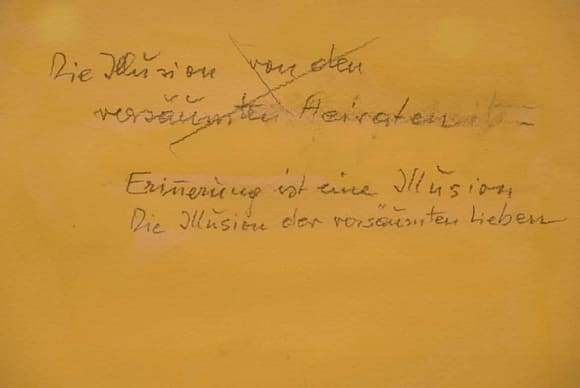 Die Illusion von den
versäumten Heiraten
Erinnerung ist eine Illusion
Die Illusion der versäumten Lieben